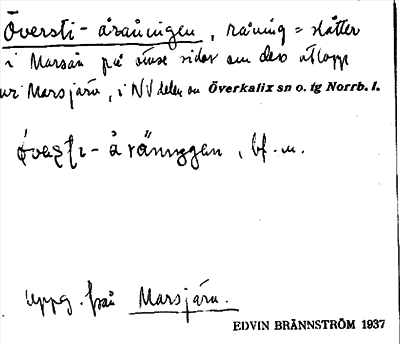 Översti-åraningen, raning = slåtter
i Marsån på ömse sidor om dess utlopp
ur Marsjärv, i NV delen av Överkalix sn o. tg Norrb. l.
-å ränıŋgen, bf. m.
Uppg. från Marsjärv.
EDVIN BRÄNNSTRÖM 1937